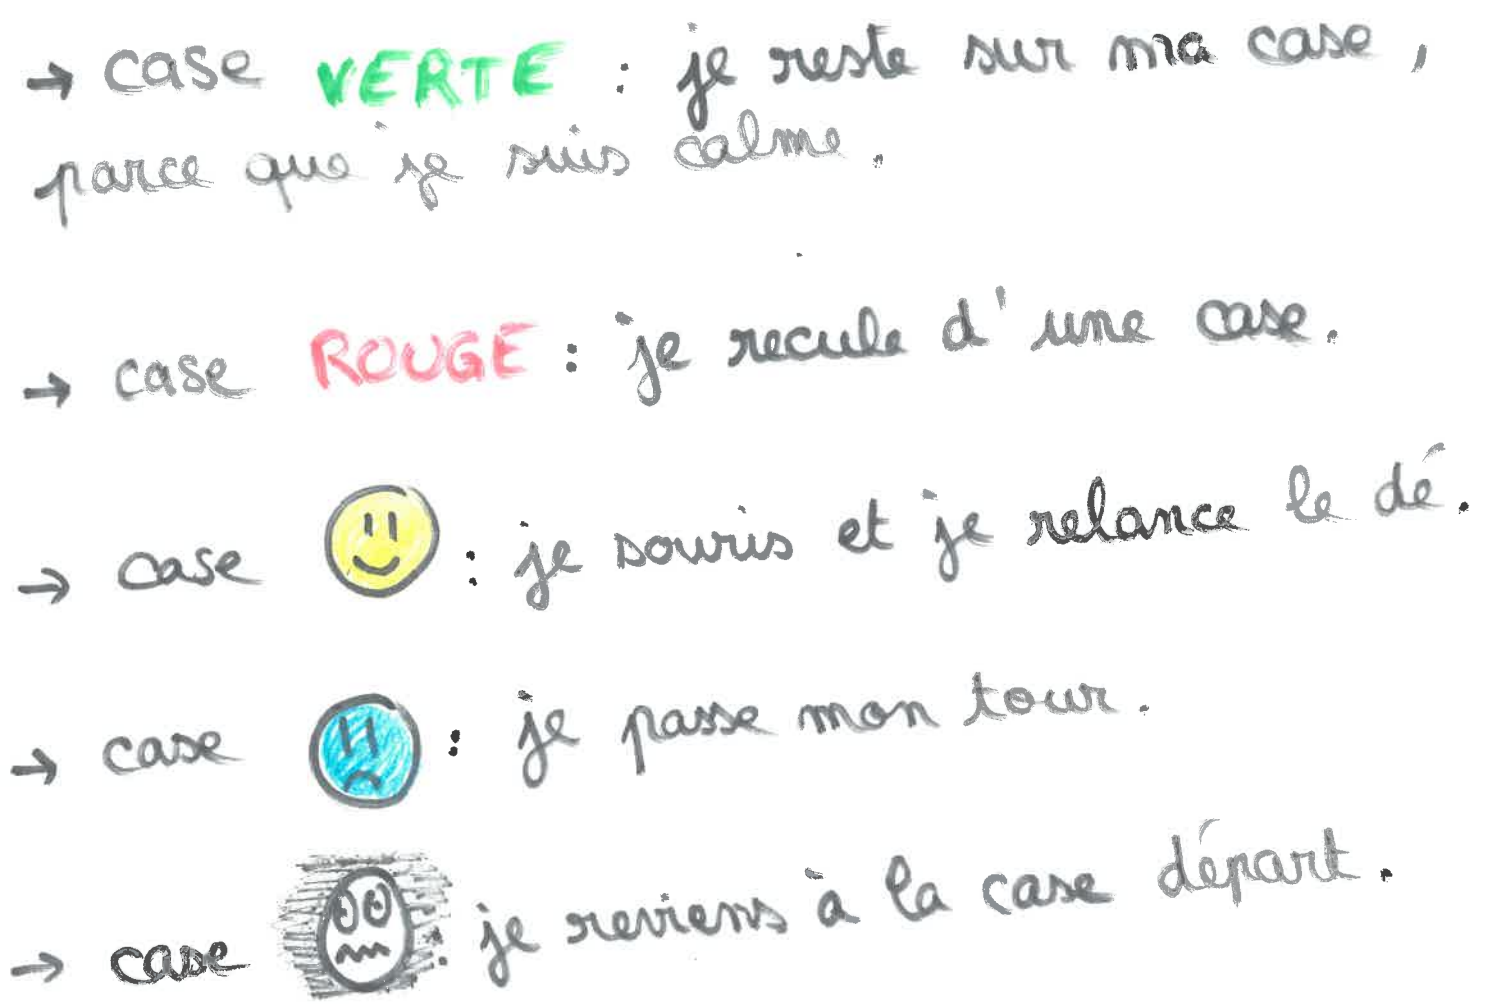 → case VERTE : je reste sur ma case,
parce que je suis calme.
→ case ROUGE : je recule d'une case.
→ case : je souris et je relance le dé.
→ case : je passe mon tour.
→ case : je reviens à la case départ.